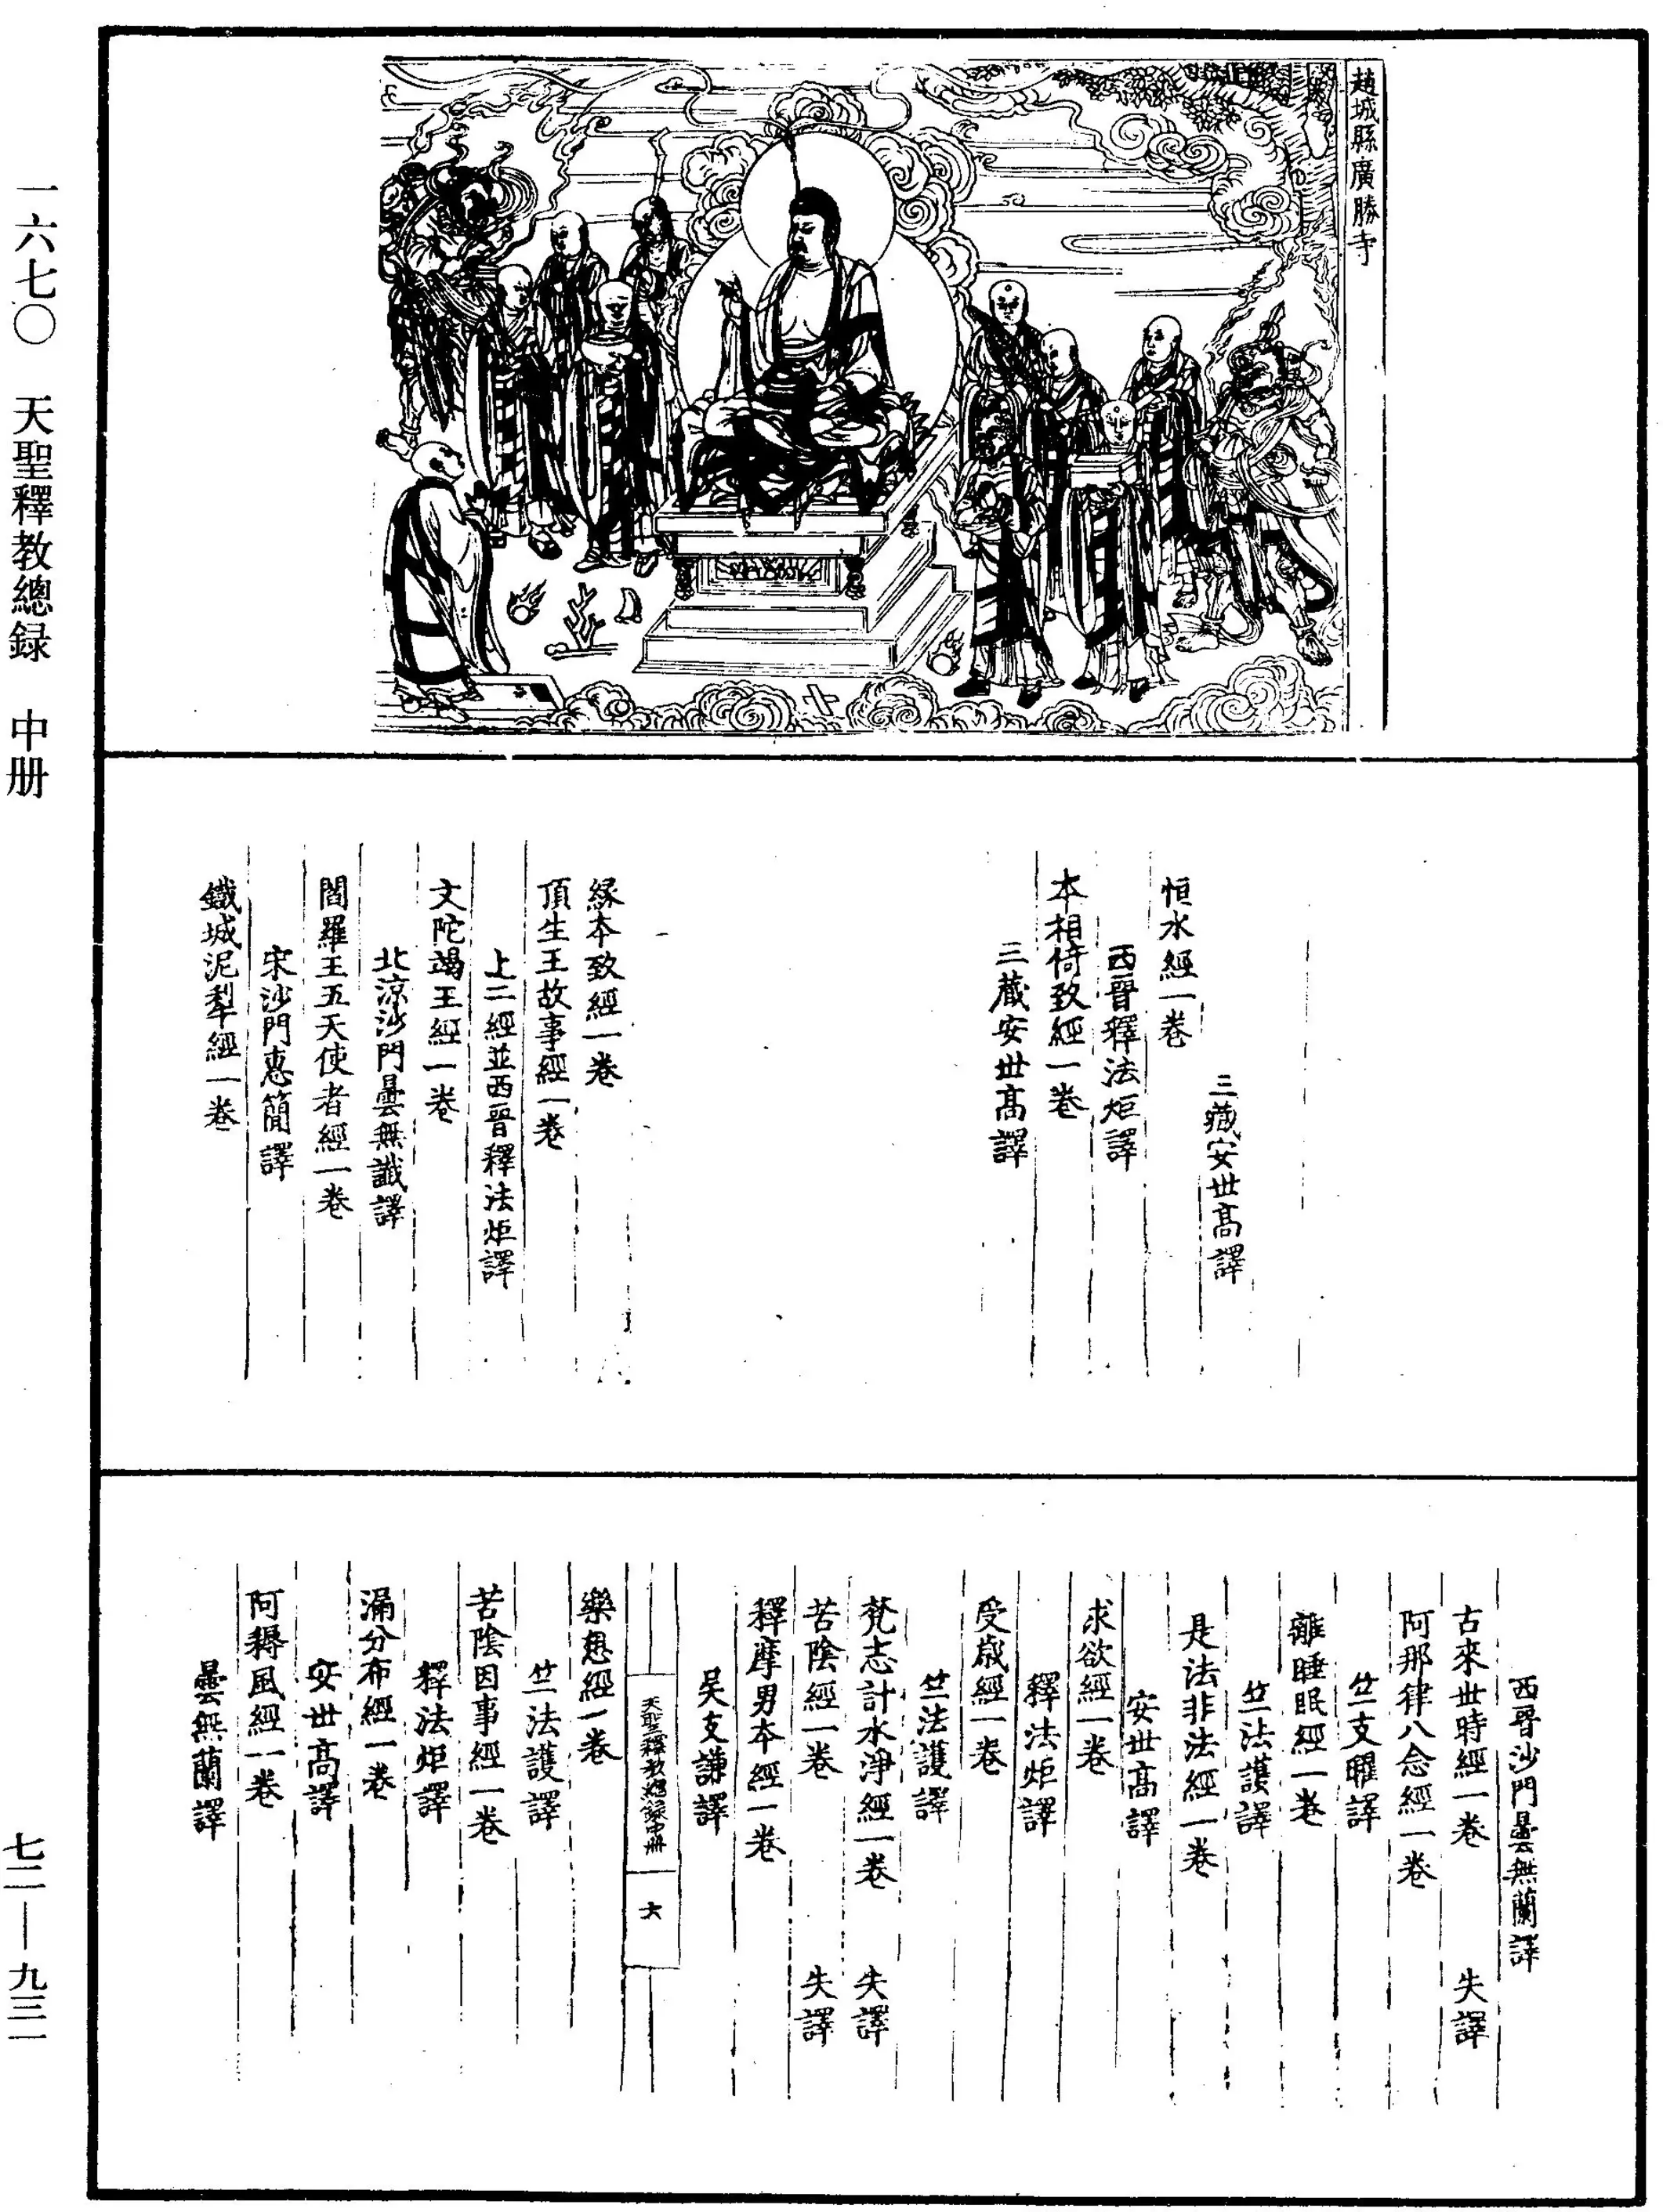 趙城縣廣勝寺
三藏安世高譯
恒水經一卷
西晉釋法炬譯
本相倚致經一卷
三藏安世高譯
緣本致經一卷
頂生王故事經一卷
上二經並西晉釋法炬譯
文陀竭王經一卷
北涼沙門曇無讖譯
閻羅王五天使者經一卷
宋沙門惠簡譯
鐵城泥犁經一卷
西晉沙門曇無蘭譯
古來世時經一卷　失譯
阿那律八念經一卷
竺支曜譯
離睡眠經一卷
竺法護譯
是法非法經一卷
安世高譯
求欲經一卷
釋法炬譯
受歲經一卷
竺法護譯
梵志計水淨經一卷　失譯
苦陰經一卷　失譯
釋摩男本經一卷
吴支謙譯
天聖釋教總錄中册　六
樂想經一卷
竺法護譯
苦陰因事經一卷
釋法炬譯
漏分布經一卷
安世高譯
阿耨風經一卷
曇無蘭譯
一六七〇　天聖釋教總録　中册　七二—九三一